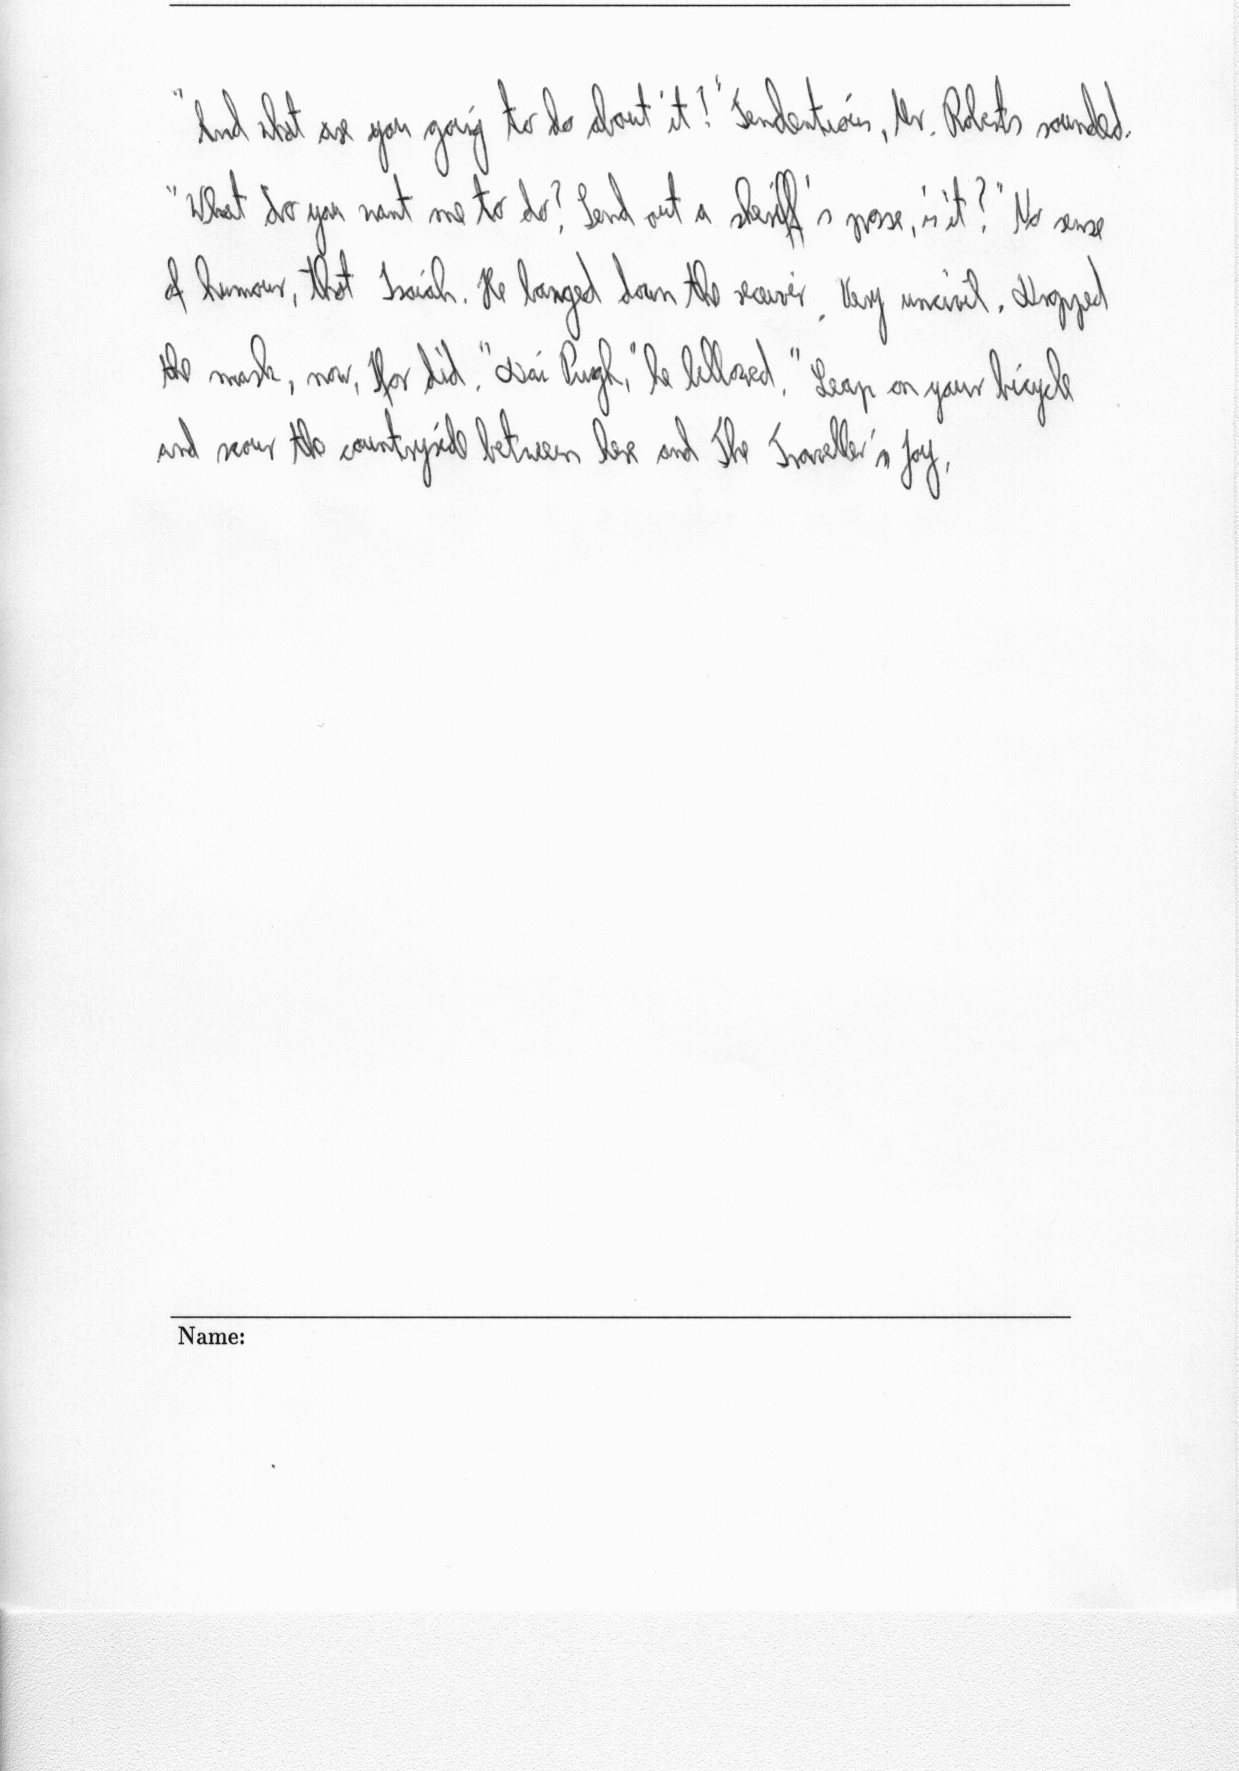 "And what are you going to do about it?" Tendentious, Mr. Roberts sounded.
"What do you want me to do? Send out a sheriff's posse, is it?" No sense
of humour, that Isaiah. He banged down the receiver. Very uncivil. Dropped
the mask, now, Ifor did. "Dai Pugh," he bellowed. "Leap on your bicycle
and scour the countryside between here and The Traveller's Joy,
Name: